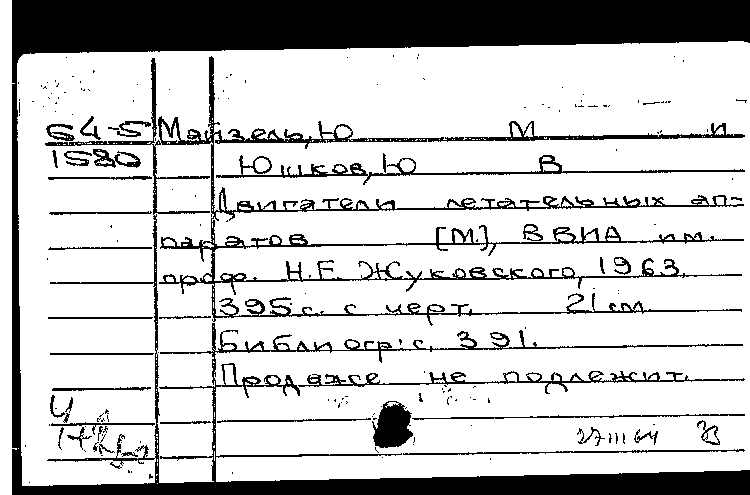 64-5 Майзель, Ю М и
1580 Юшков, Ю В
Двигатели летательных ап=
паратов [М], ВВИА им.
проф. Н.Е. Жуковского, 1963.
395 с. с черт. 21 см.
Библиогр: с. 391.
Продаже не подлежит.
27 III 64